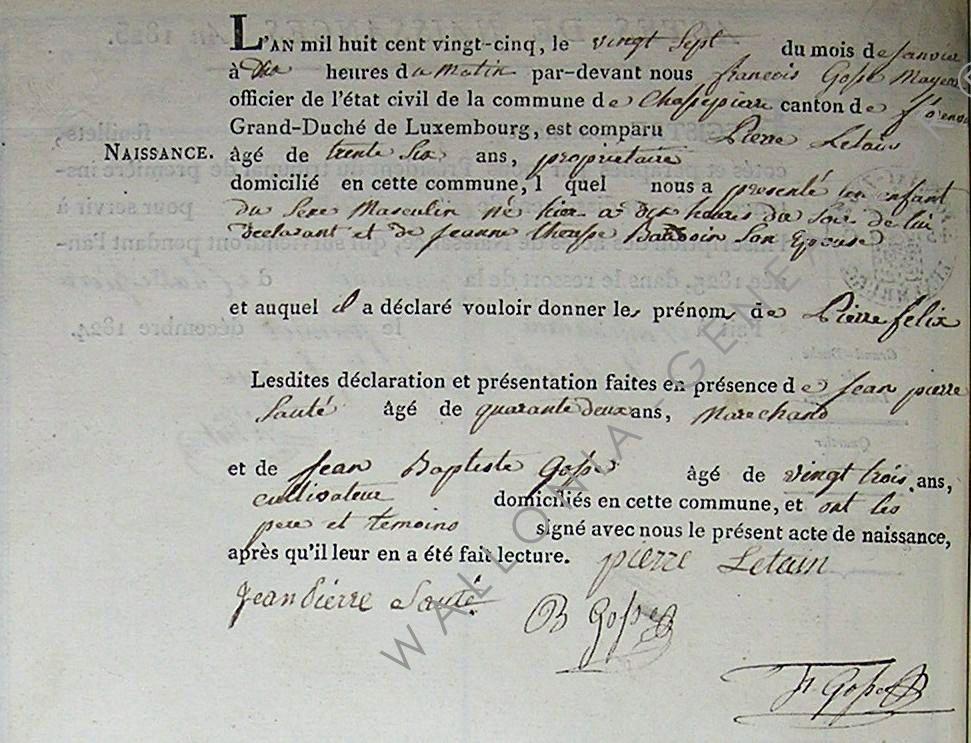 L'AN mil huit cent vingt-cinq, le vingt Sept du mois de Janvier
à Dix heures du Matin par-devant nous francois Gosse Mayeur
officier de l'état civil de la commune de Chassepierre canton de
Grand-Duché de Luxembourg, est comparu Pierre Letain
NAISSANCE. âgé de trente Six ans, proprietaire
domicilié en cette commune, l quel nous a presenté un enfant
du Sexe Masculin né hier a dix heures du Soir de lui
declarant et de Jeanne therese Baudoin Son Epouse
et auquel il a déclaré vouloir donner les prénoms de Pierre felix
Lesdites déclaration et présentation faites en présence de Jean pierre
Sauté âgé de quarante deux ans, Marechand
et de Jean Baptiste Gosse âgé de vingt trois ans,
cultivateur domiciliés en cette commune, et ont les
pere et temoins signé avec nous le présent acte de naissance,
après qu'il leur en a été fait lecture. pierre Letain
Jean Pierre Sauté B Gosse
F Gosse
WALLONIA - GENE